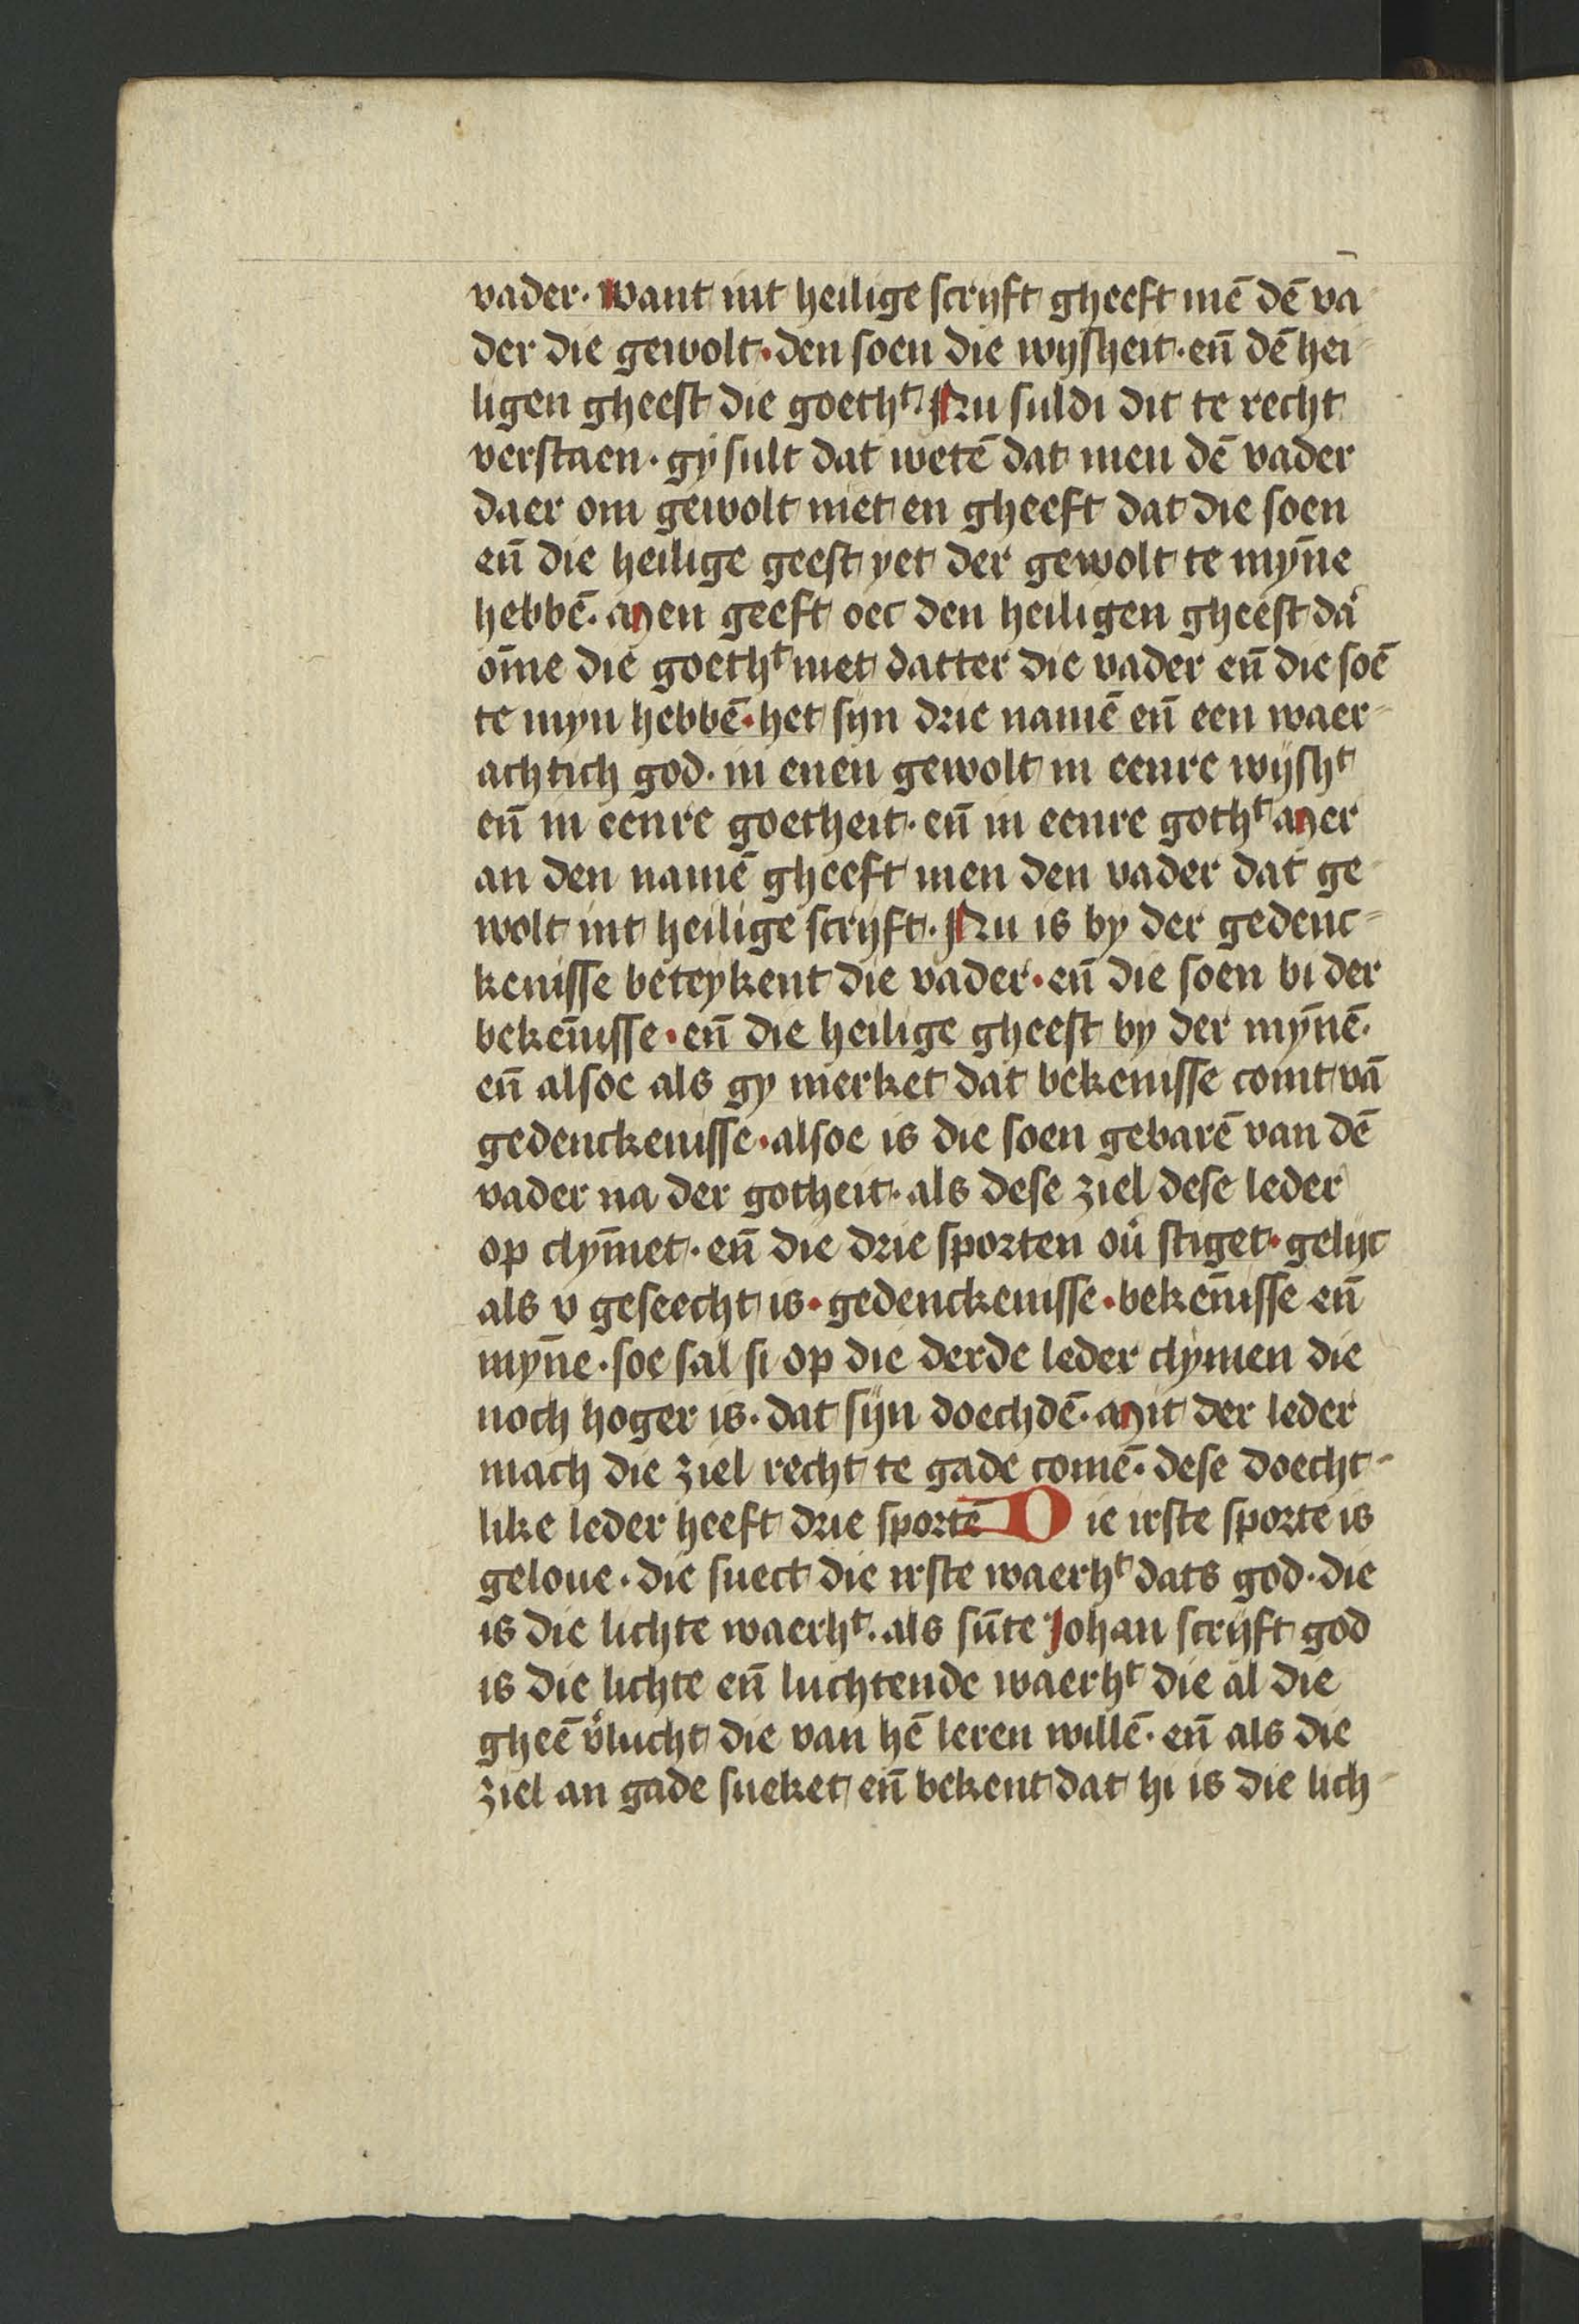 vader· Want int heilige scrijft gheeft mē dē va
der die gewolt· den soen die wijsheit· eñ dē hei
ligen gheest die goethᵗ· Nu suldi dit te recht
verstaen· gij sult dat wetē dat men dē vader
daer om gewolt niet en gheeft dat die soen
eñ die heilige geest yet der gewolt te myñe
hebbē· Men geeft oec den heiligen gheest da͛
om̄e die goethᵗ niet datter die vader eñ die soē
te myn hebbē· het sijn drie namē eñ een waer-
achtich god· in enen gewolt in eenre wijshᵗ
eñ in eenre goetheit· eñ in eenre gothᵗ Mer
an den namē gheeft men den vader dat ge
wolt int heilige scrijft· Nu is by der gedenc-
kenisse beteykent die vader· eñ die soen bi der
bekēnisse· eñ die heilige gheest by der mȳnē·
eñ alsoe als gy merket dat bekenisse comt vā
gedenckenisse· alsoe is die soen gebarē van dē
vader na der gotheit· als dese ziel dese leder
op clym̄et· eñ die drie sporten ou͛ stiget· gelijc
als v geseecht is· gedenckenisse· bekēnisse eñ
myñe· soe sal si op die derde leder clymen die
noch hoger is· dat sijn doechdē· Mit der leder
mach die ziel recht te gade comē· dese doecht-
like leder heeft drie sportē Die irste sporte is
geloue· die suect die irste waerhᵗ dats god· die
is die lichte waerhᵗ· als sūte Johan scrijft god
is die lichte eñ luchtende waerhᵗ die al die
gheē v͛lucht die van hē leren willē· eñ als die
ziel an gade sueket eñ bekent dat hi is die lich-